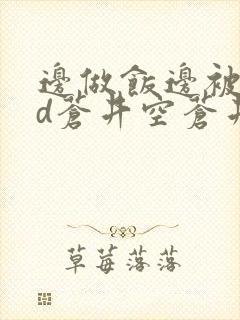 邊做飯邊被
d蒼井空蒼井
草莓落落